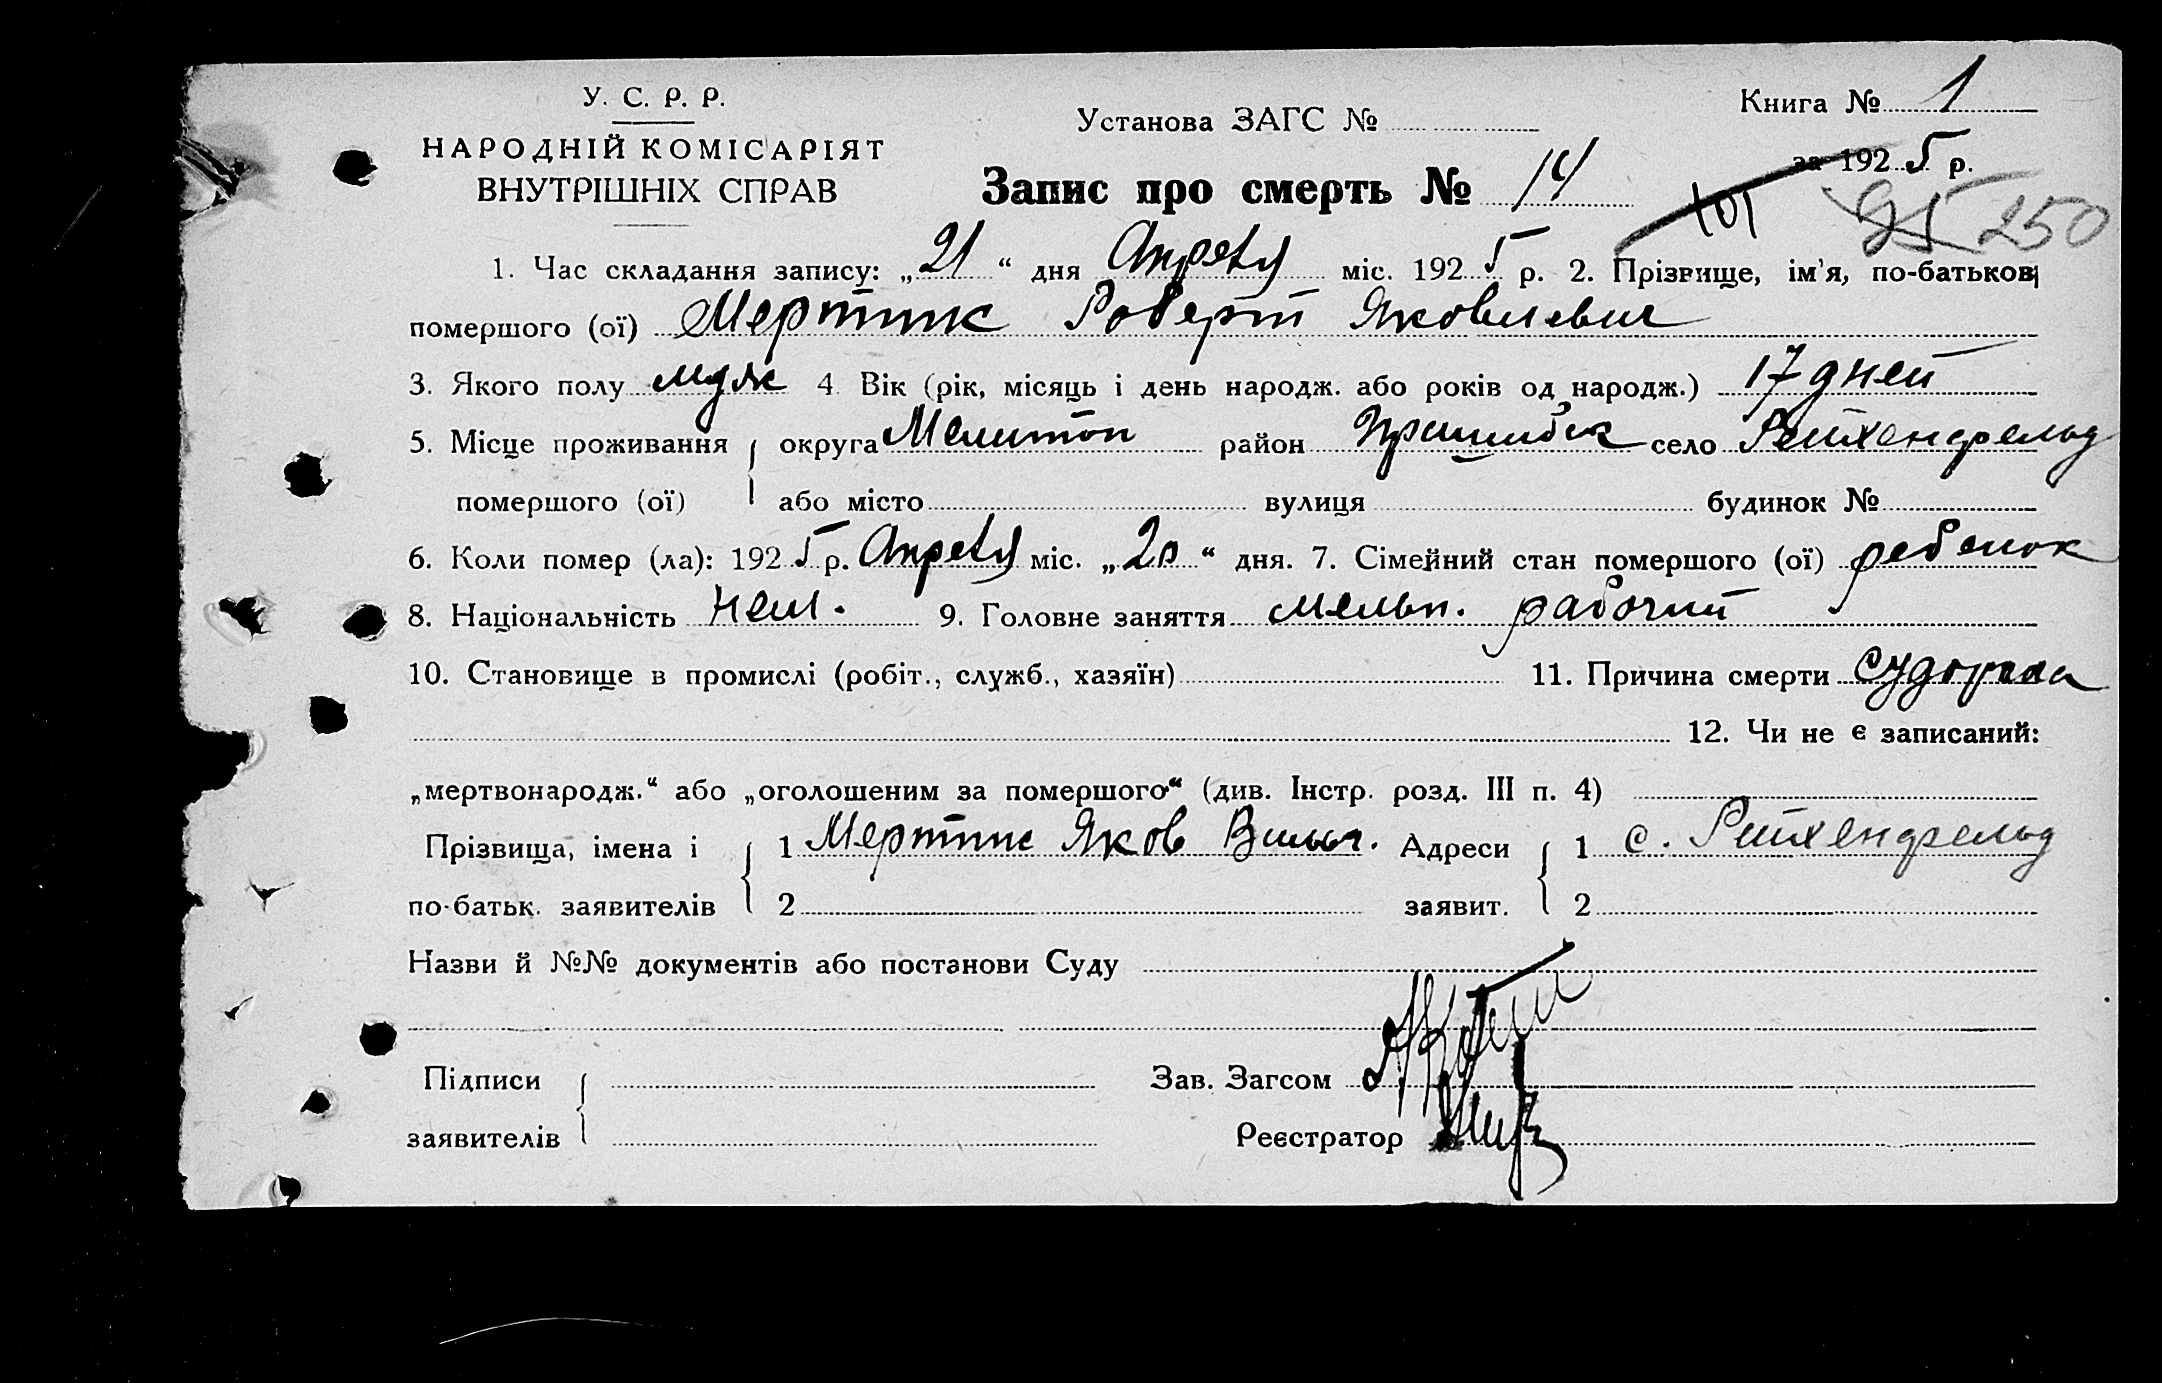 У. С. Р. Р.
НАРОДНІЙ КОМІСАРІЯТ
ВНУТРІШНІХ СПРАВ
Установа ЗАГС №
Книга № 1
за 1925 р.
Запис про смерть № 14
101 95 250
1. Час складання запису: „21“ дня Апреля міс. 1925 р. 2. Прізвище, ім'я, по-батькові
помершого (ої) Мертинс Роберт Яковлевич
3. Якого полу мужс 4 Вік (рік, місяць і день народж. або років од народж.) 17 дней
5. Місце проживання округа Мелитоп район Пришибск село Рейхенфельд
помершого (ої) або місто вулиця будинок №
6. Коли помер (ла): 1925 р. Апреля міс. „20“ дня. 7. Сімейний стан помершого (ої) ребенок
8. Національність нем. 9. Головне заняття мельн. рабочий
10. Становище в промислі (робіт., служб., хазяїн) 11. Причина смерти судорога
12. Чи не є записаний:
„мертвонародж.“ або „оголошеним за помершого“ (див. Інстр. розд. III п. 4)
Прізвища, імена і 1 Мертинс Яков Вильг. Адреси 1 с. Рейхенфельд
по-батьк. заявителів 2 заявит. 2
Назви й №№ документів або постанови Суду
Підписи Зав. Загсом
заявителів Реєстратор